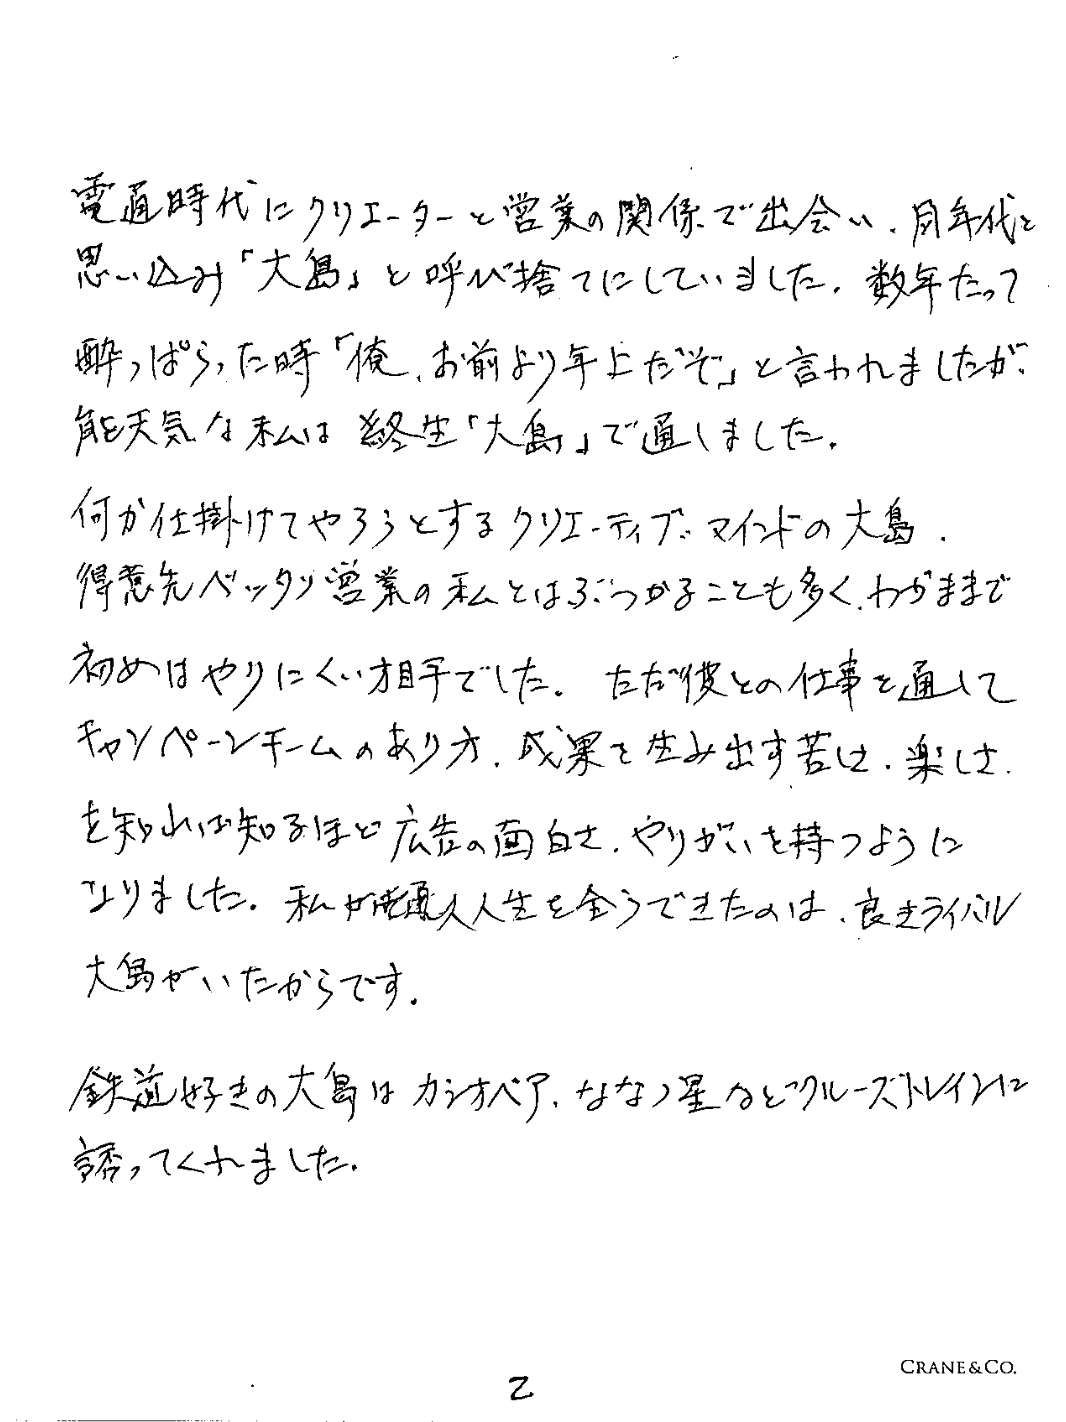 電通時代にクリエーターと営業の関係で出会い、同年代と
思い込み「大島」と呼び捨てにしていました。数年たって
酔っぱらった時「俺、お前より年上だぞ」と言われましたが、
能天気な私は終生「大島」で通しました。
何か仕掛けてやろうとするクリエーティブ・マインドの大島、
得意先ベッタリ営業の私とはぶつかることも多く、わがままで
初めはやりにくい相手でした。ただ彼との仕事を通して
キャンペーンチームのあり方、成果を生み出す苦しさ、楽しさ、
を知れば知るほど広告の面白さ、やりがいを持つように
なりました。私が広告人人生を全うできたのは、良きライバル
大島がいたからです。
鉄道好きの大島はカシオペア、ななつ星などクルーズトレインに
誘ってくれました。
CRANE&CO.
2